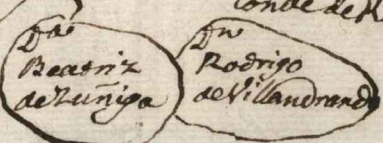 Conde de R
Da
Beatriz
de Zuñiga
Dn
Rodrigo
de Villandrando